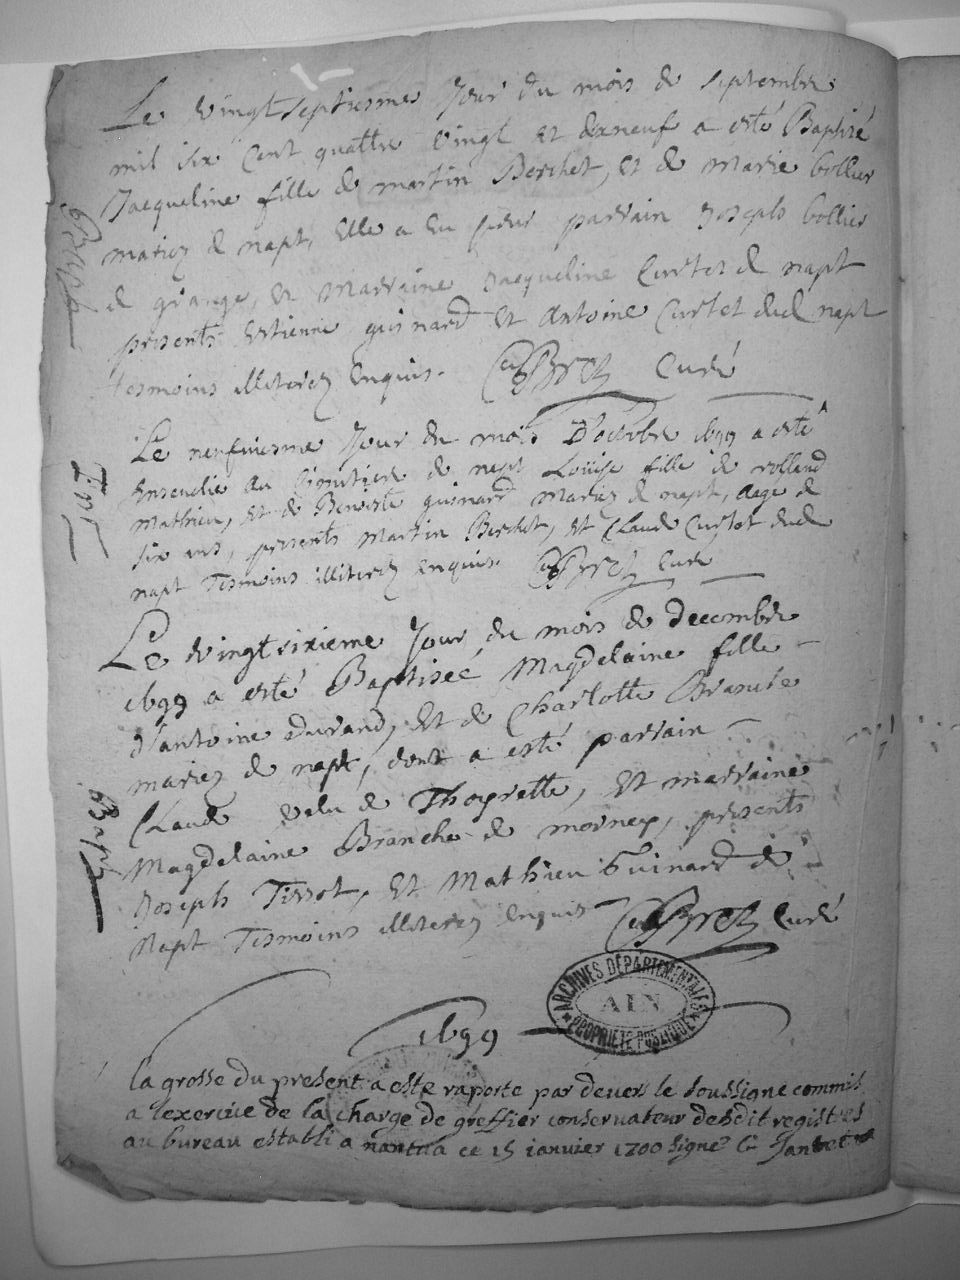 Le vingtseptiesme Jour du mois de septembre
mil six cent quattre vingt et dixneuf a esté Baptizé
Jacqueline fille de martin Berchet, et de marie bollier
mariez de napt, Elle a eu pour parrain Joseph bollier
de grange, et marraine Jacqueline Curtet de napt
presents Estienne guinard et Antoine Curtet dud napt
tesmoins illiterez enquis. curé
Le neufviesme Jour du mois D'octobre 1699 a esté
Ensevelie au Cimitiere de napt Louise fille de rolland
mathieu, et de Benoiste guinard mariez de napt, aage de
six ans, presents martin Berchet, et Claude Curtet dud
napt Tesmoins illiterez enquis. curé
Le vingtsixieme Jour du mois de decembre
1699 a esté Baptisée Magdelaine fille
d'antoine durand, et de Charlotte
mariez de napt, dont a esté parrain
Claude de Thoyrette, et marraine
Magdelaine Branche de mornex, presents
Joseph Tissot, et Mathieu Guinard de
Napt Tesmoins illiterez enquis curé
1699
ARCHIVES DÉPARTEMENTALES
AIN
PROPRIETE PUBLIQUE
la grosse du present a este raporte par devers le soussigne commis
a lexercice de la charge de greffier conservateur desdit registres
au bureau establi a nantua ce 15 janvier 1700 signe